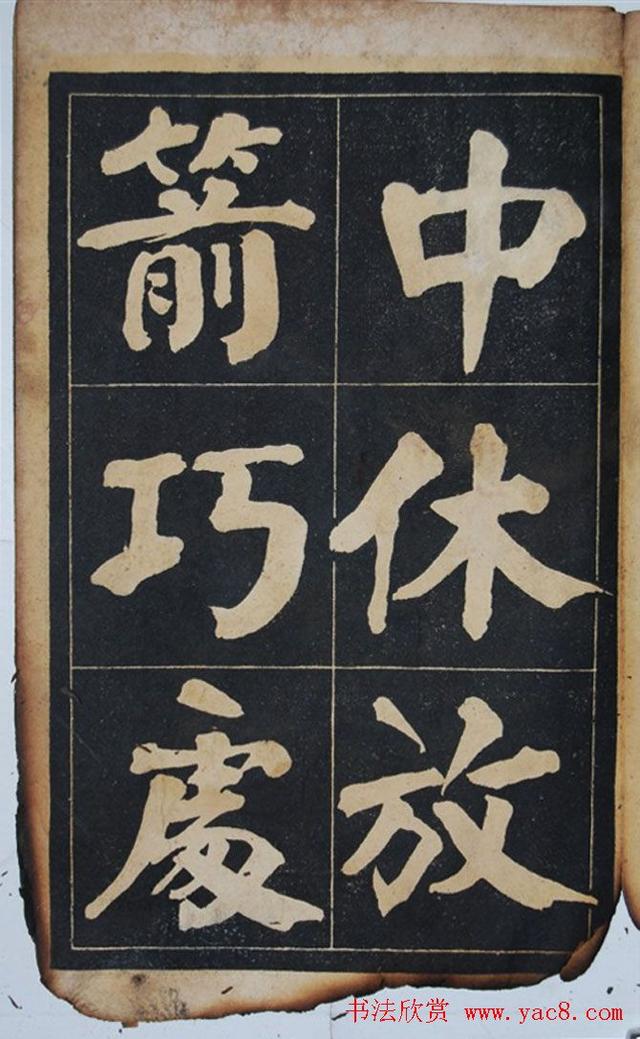 中休放
箭巧處
书法欣赏 www.yac8.com